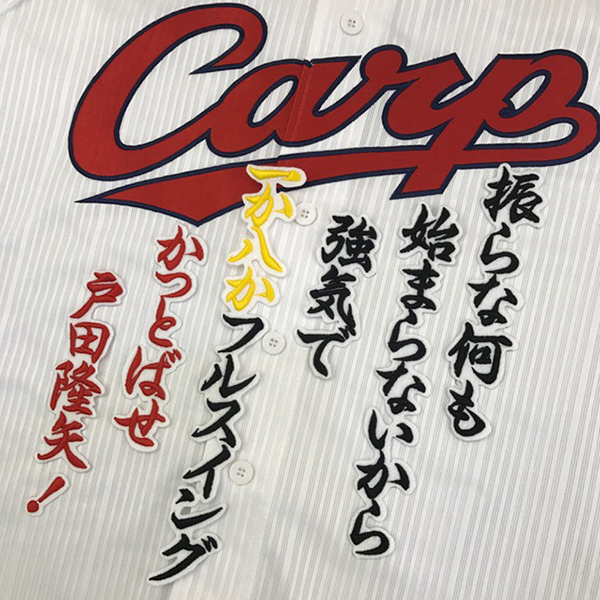 Carp
振らな何も
始まらないから
強気で
一か八かフルスイング
かっとばせ
戸田隆矢！